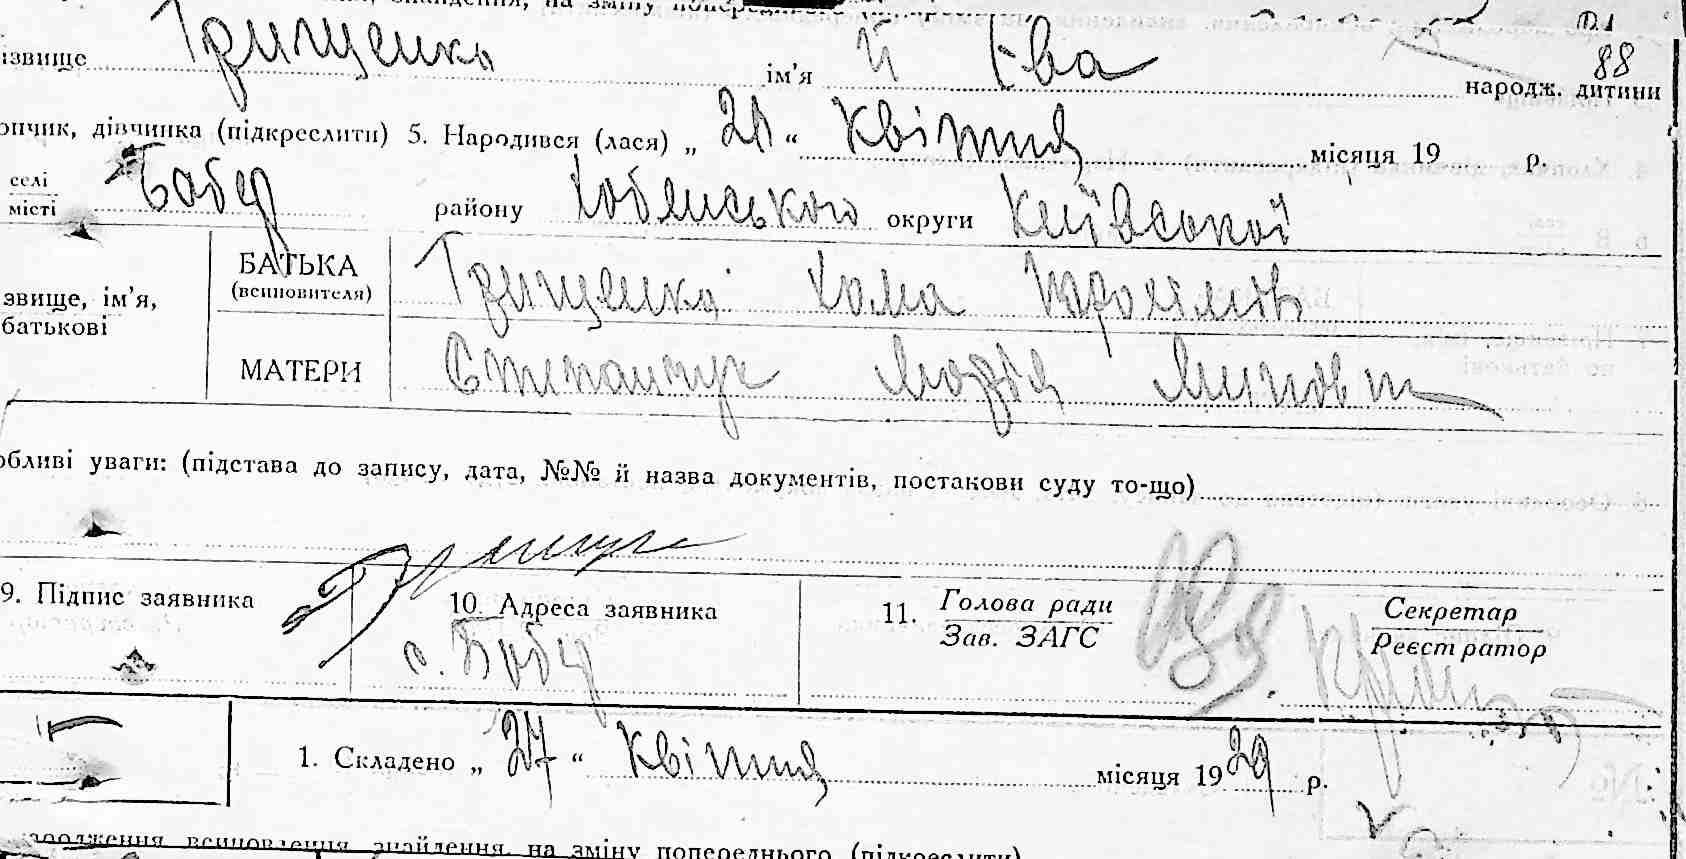 на зміну попереднього
ізвище Грищенко ім'я й Єва народж. дитини 88
опчик, дівчинка (підкреслити) 5. Народився (лася) „ 21 “ квітня місяця 19 р.
селі
місті Бобер району округи Київської
звище, ім'я,
батькові
БАТЬКА
(всиновителя) Грищенко Хома
МАТЕРИ Степанчук
обливі уваги: (підстава до запису, дата, №№ й назва документів, постанови суду то-що)
9. Підпис заявника
10. Адреса заявника
с. Бобер
11. Голова ради
Зав. ЗАГС
Секретар
Реєстратор
1. Складено „ 27 “ квітня місяця 1929 р.
народження, всиновлення, знайдення, на зміну попереднього (підкреслити)